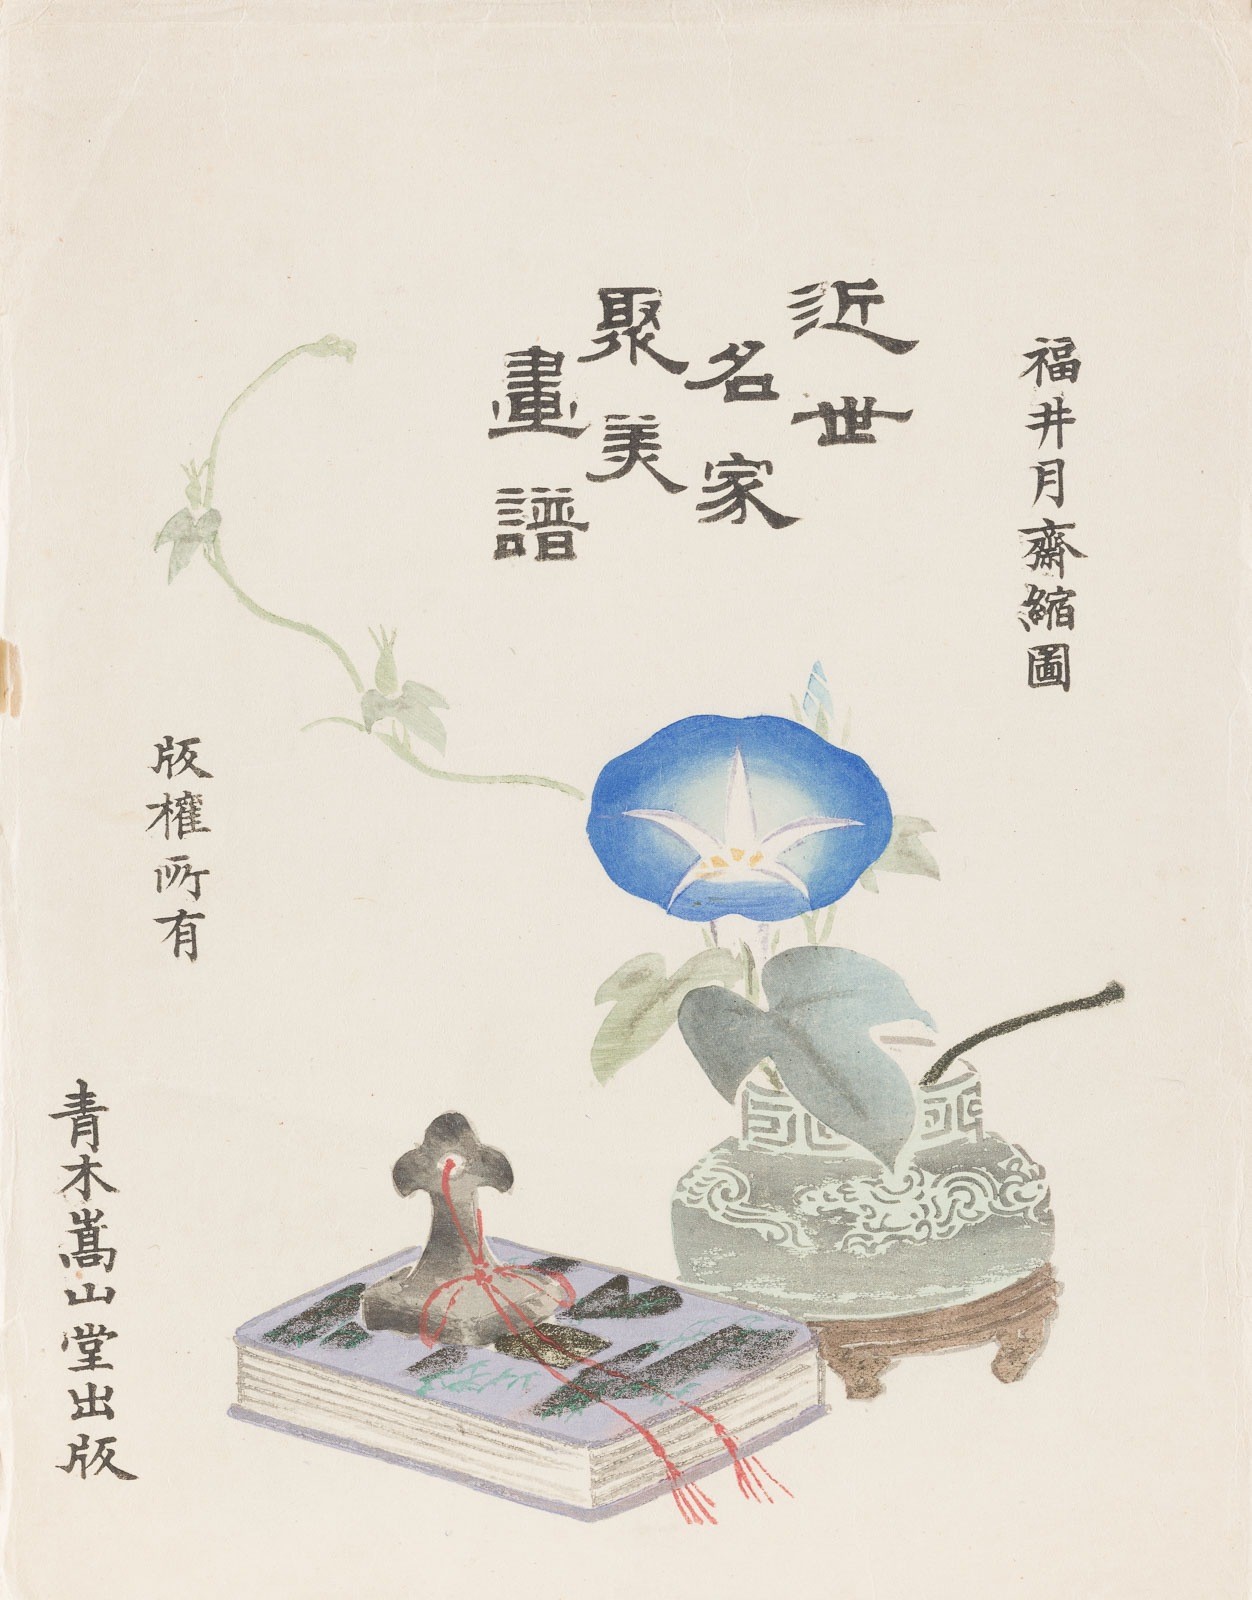 福井月齋縮圖
近世
名家
聚美
畫譜
版權所有
青木嵩山堂出版